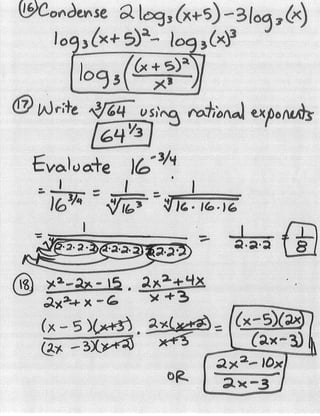 ⑯ Condense 2log₃(x+5)-3log₃(x)
log₃(x+5)²- log₃(x)³
log₃((x+5)²/x³)
⑰ Write ∛64 using rational exponents
64^(1/3)
Evaluate 16^(-3/4)
= 1/16^(3/4) = 1/∜16³ = 1/∜(16·16·16)
= 1/∜(2·2·2·2·2·2·2·2·2·2·2·2) = 1/(2·2·2) = 1/8
⑱ (x²-2x-15)/(2x²+x-6) · (2x²+4x)/(x+3)
(x-5)(x+3)/((2x-3)(x+2)) · 2x(x+2)/(x+3) = (x-5)(2x)/(2x-3)
OR (2x²-10x)/(2x-3)